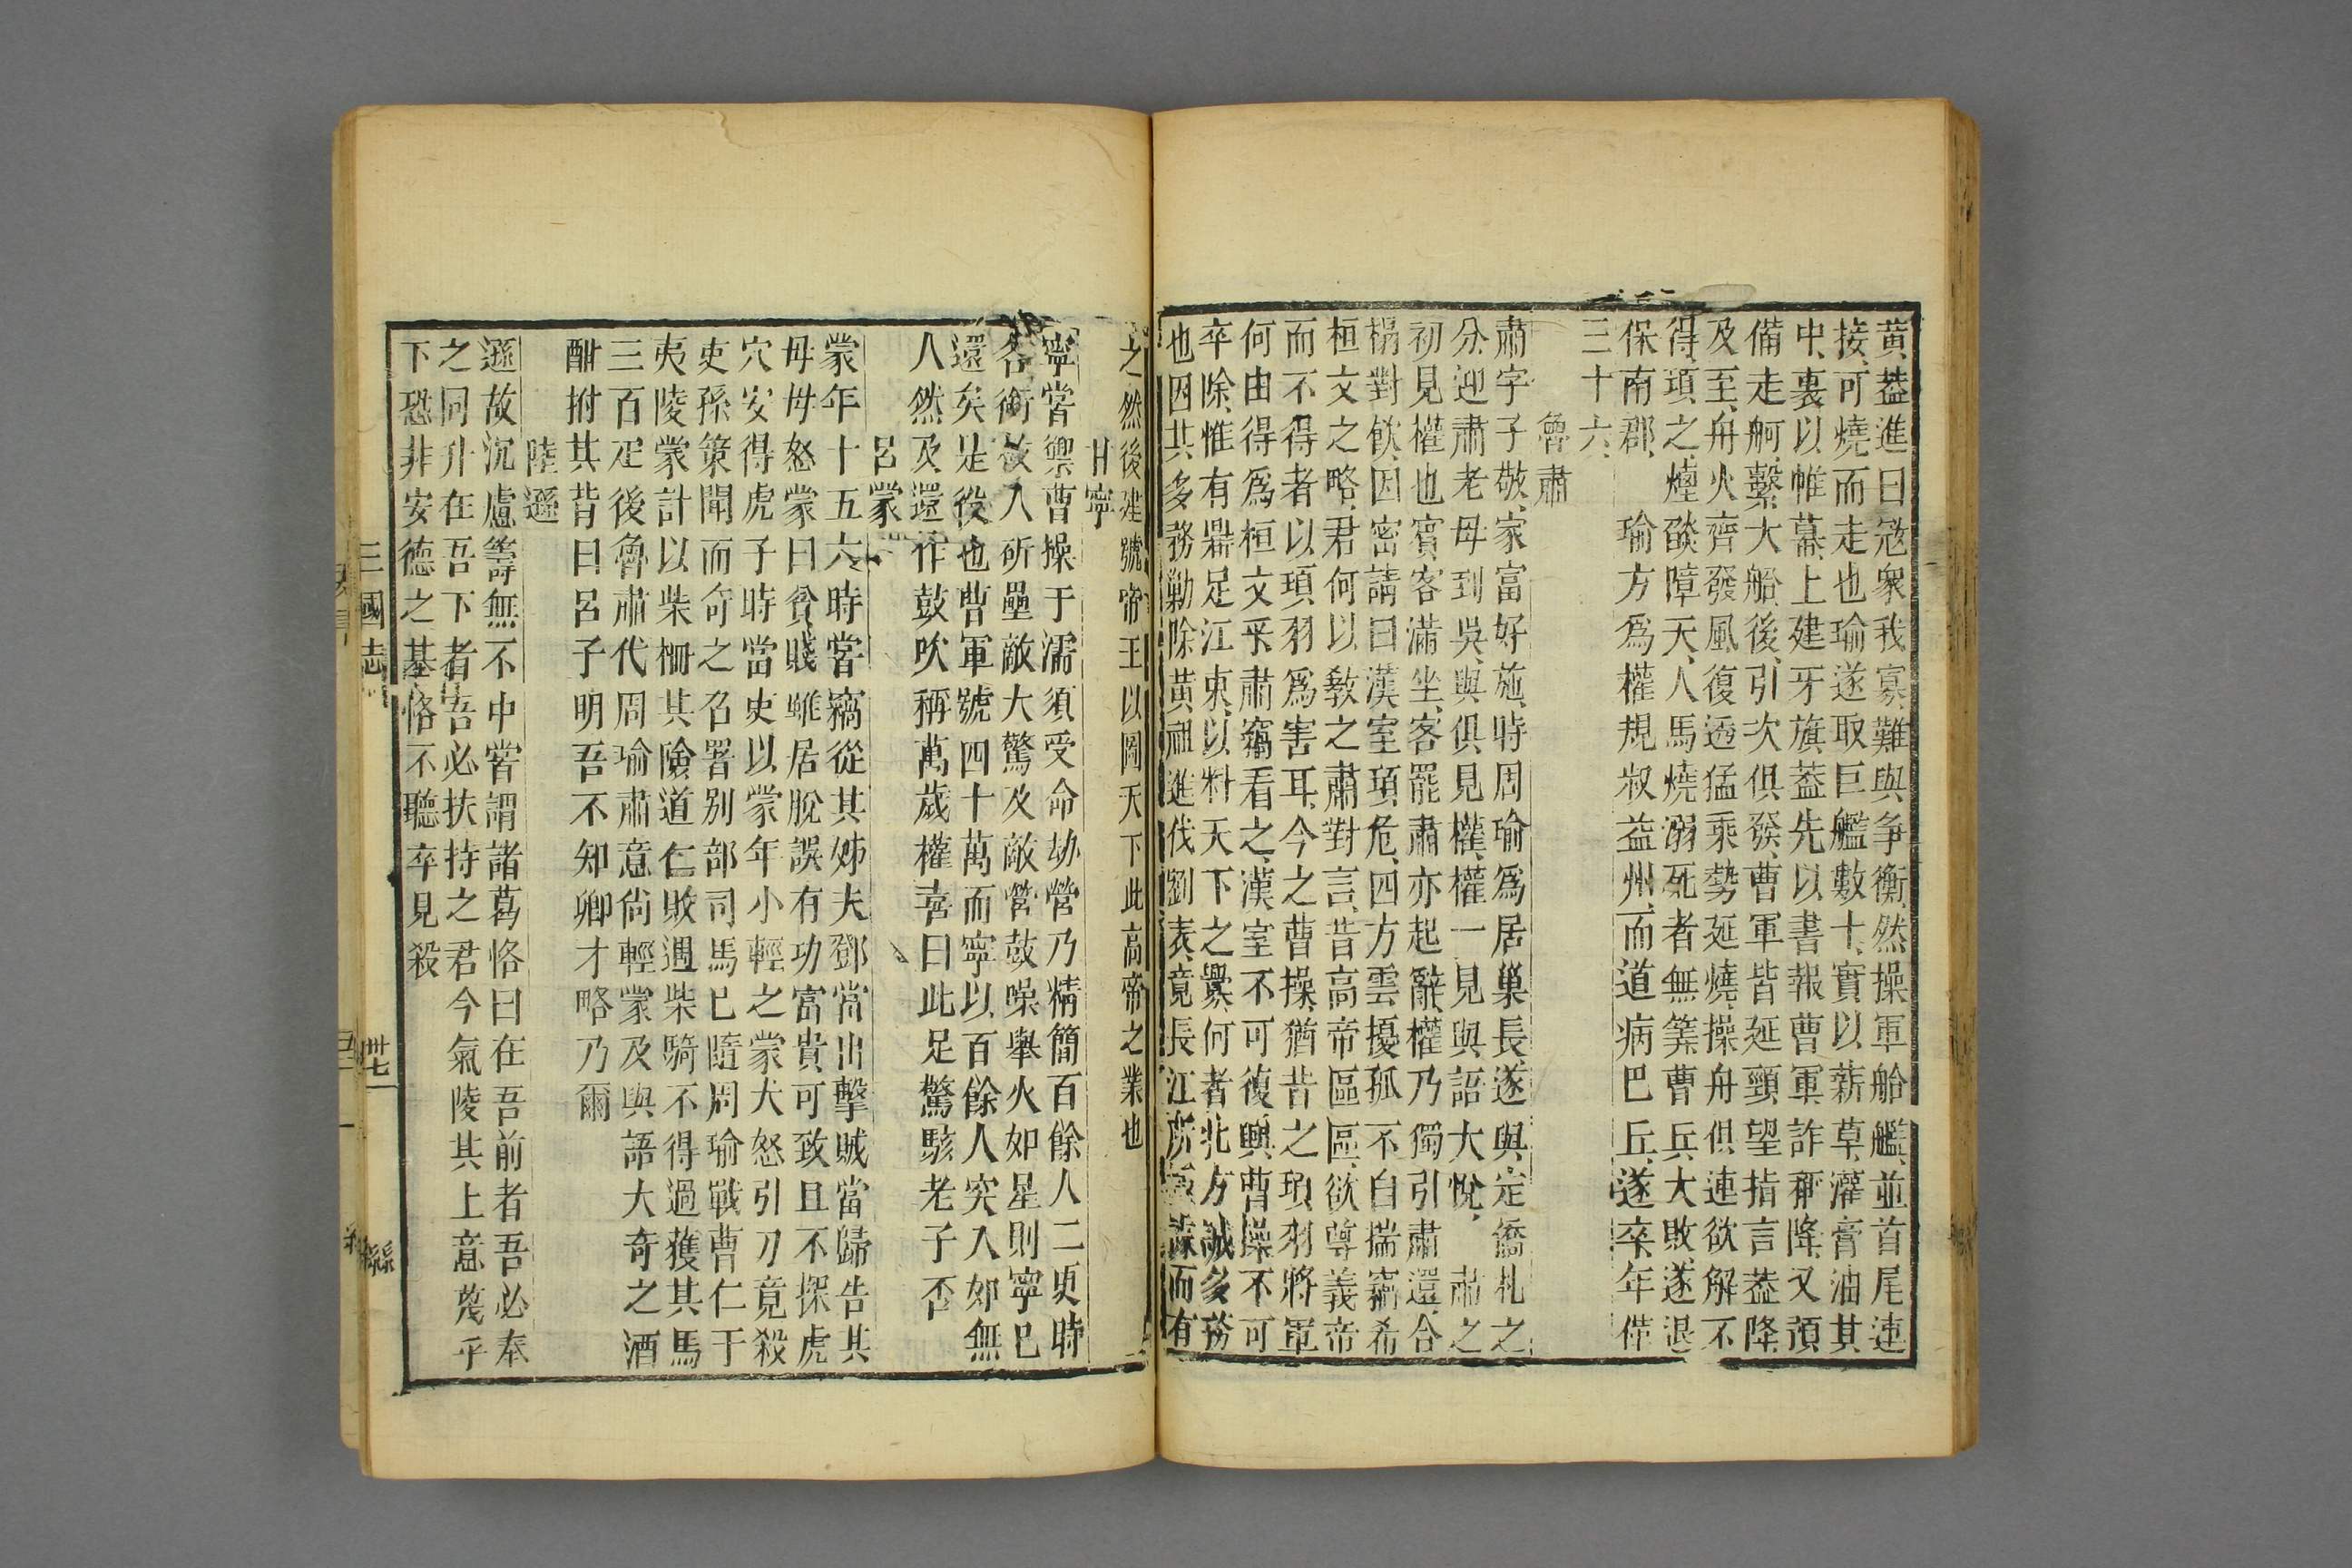 黄葢進曰冦衆我寡難與争衡然操軍船艦並首尾連
接可燒而走也瑜遂取巨艦數十實以薪草灌膏油其
中裏以帷幕上建牙旗葢先以書報曹軍詐稱降又預
備走舸繫大船後引次俱發曹軍皆延頸望指言葢降
及至舟火齊發風復逎猛乘勢延燒操舟俱連欲解不
得頃之煙燄障天人馬燒溺死者無筭曹兵大敗遂退
保南郡 瑜方爲權規𭣣益州而道病巴丘遂卒年僅
三十六
魯肅
肅字子敬家富好施時周瑜爲居巢長遂與定僑札之
分迎肅老母到吳與俱見權權一見與語大悅 肅之
初見權也賓客滿坐客罷肅亦起辭權乃獨引肅還合
榻對飲因密請曰漢室頃危四方雲擾孤不自揣竊希
桓文之略君何以敎之肅對言昔高帝區區欲尊義帝
而不得者以項羽爲害耳今之曹操猶昔之項羽將軍
何由得爲桓文乎肅竊看之漢室不可復興曹操不可
卒除惟有鼎足江東以料天下之釁何者北方誠多務
也因其多務勦除黃祖進伐劉表竟長江所 據而有
之然後建號帝王以圖天下此高帝之業也
甘寧
寧嘗禦曹操于濡須受命劫營乃精簡百餘人二更時
各銜枚入斫壘敵大驚及敵營鼓噪舉火如星則寧已
還矣是役也曹軍號四十萬而寧以百餘人突入如無
人然及還作鼓吹稱萬歲權喜曰此足驚駭老子否
呂蒙
蒙年十五六時嘗竊從其姊夫鄧當出擊賊當歸告其
母母怒蒙曰貧賤難居脫誤有功富貴可致且不探虎
穴安得虎子時當吏以蒙年小輕之蒙大怒引刀竟殺
吏孫策聞而奇之召署别部司馬已隨周瑜戰曹仁于
夷陵蒙計以柴柵其險道仁敗遇柴騎不得過獲其馬
三百疋後魯肅代周瑜肅意尙輕蒙及與語大奇之酒
酣拊其背曰呂子明吾不知卿才略乃爾
陸遜
遜故沉慮籌無不中嘗謂諸葛恪曰在吾前者吾必奉
之同升在吾下者吾必扶持之君今氣陵其上意蔑乎
下恐非安德之基恪不聽卒見殺
三國志
卅七